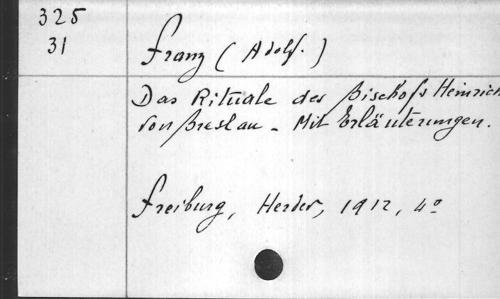 325
31
Franz (Adolf.)
Das Rituale des Bischofs Heinrich
von Breslau - Mit Erläuterungen.
Freiburg, Herder, 1912, 4º